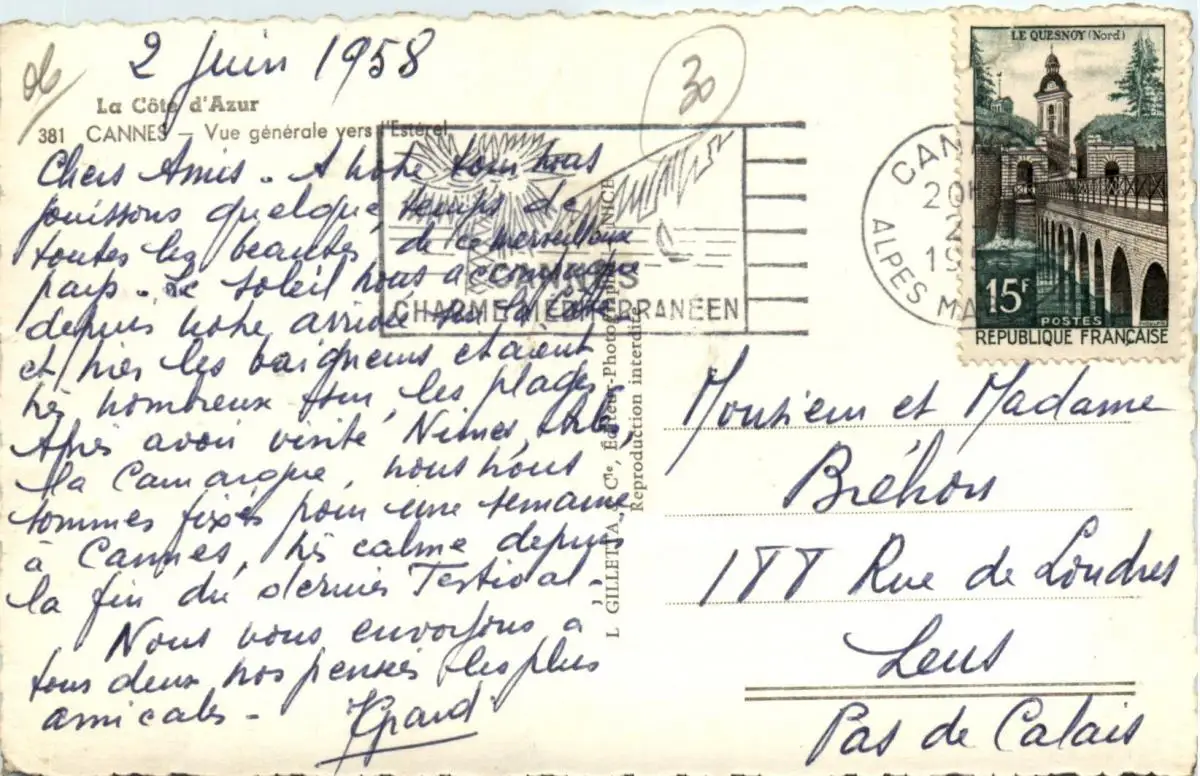 2 Juin 1958
06
30
La Côte d'Azur
381 CANNES – Vue générale vers l'Estérel
Chers Amis - A notre tour nous
jouissons quelque temps de
toutes les beautés de ce merveilleux
pays - Le soleil nous accompagne
depuis notre arrivée sur la côte
et hier les baigneurs étaient
très nombreux sur les plages
Après avoir visité Nimes, Arles,
la Camargue, nous nous
sommes fixés pour une semaine
à Cannes, très calme depuis
la fin du dernier Festival -
Nous vous envoyons à
tous deux nos pensées les plus
amicales -
CANNES
CHARME MÉDITERRANÉEN
L. GILLETTA, Cie, Éditeur-Photographe, NICE
Reproduction interdite
CANN
20H
2
195
ALPES MA
LE QUESNOY (Nord)
15F
POSTES
RÉPUBLIQUE FRANÇAISE
Monsieur et Madame
Bréhon
188 Rue de Londres
Lens
Pas de Calais